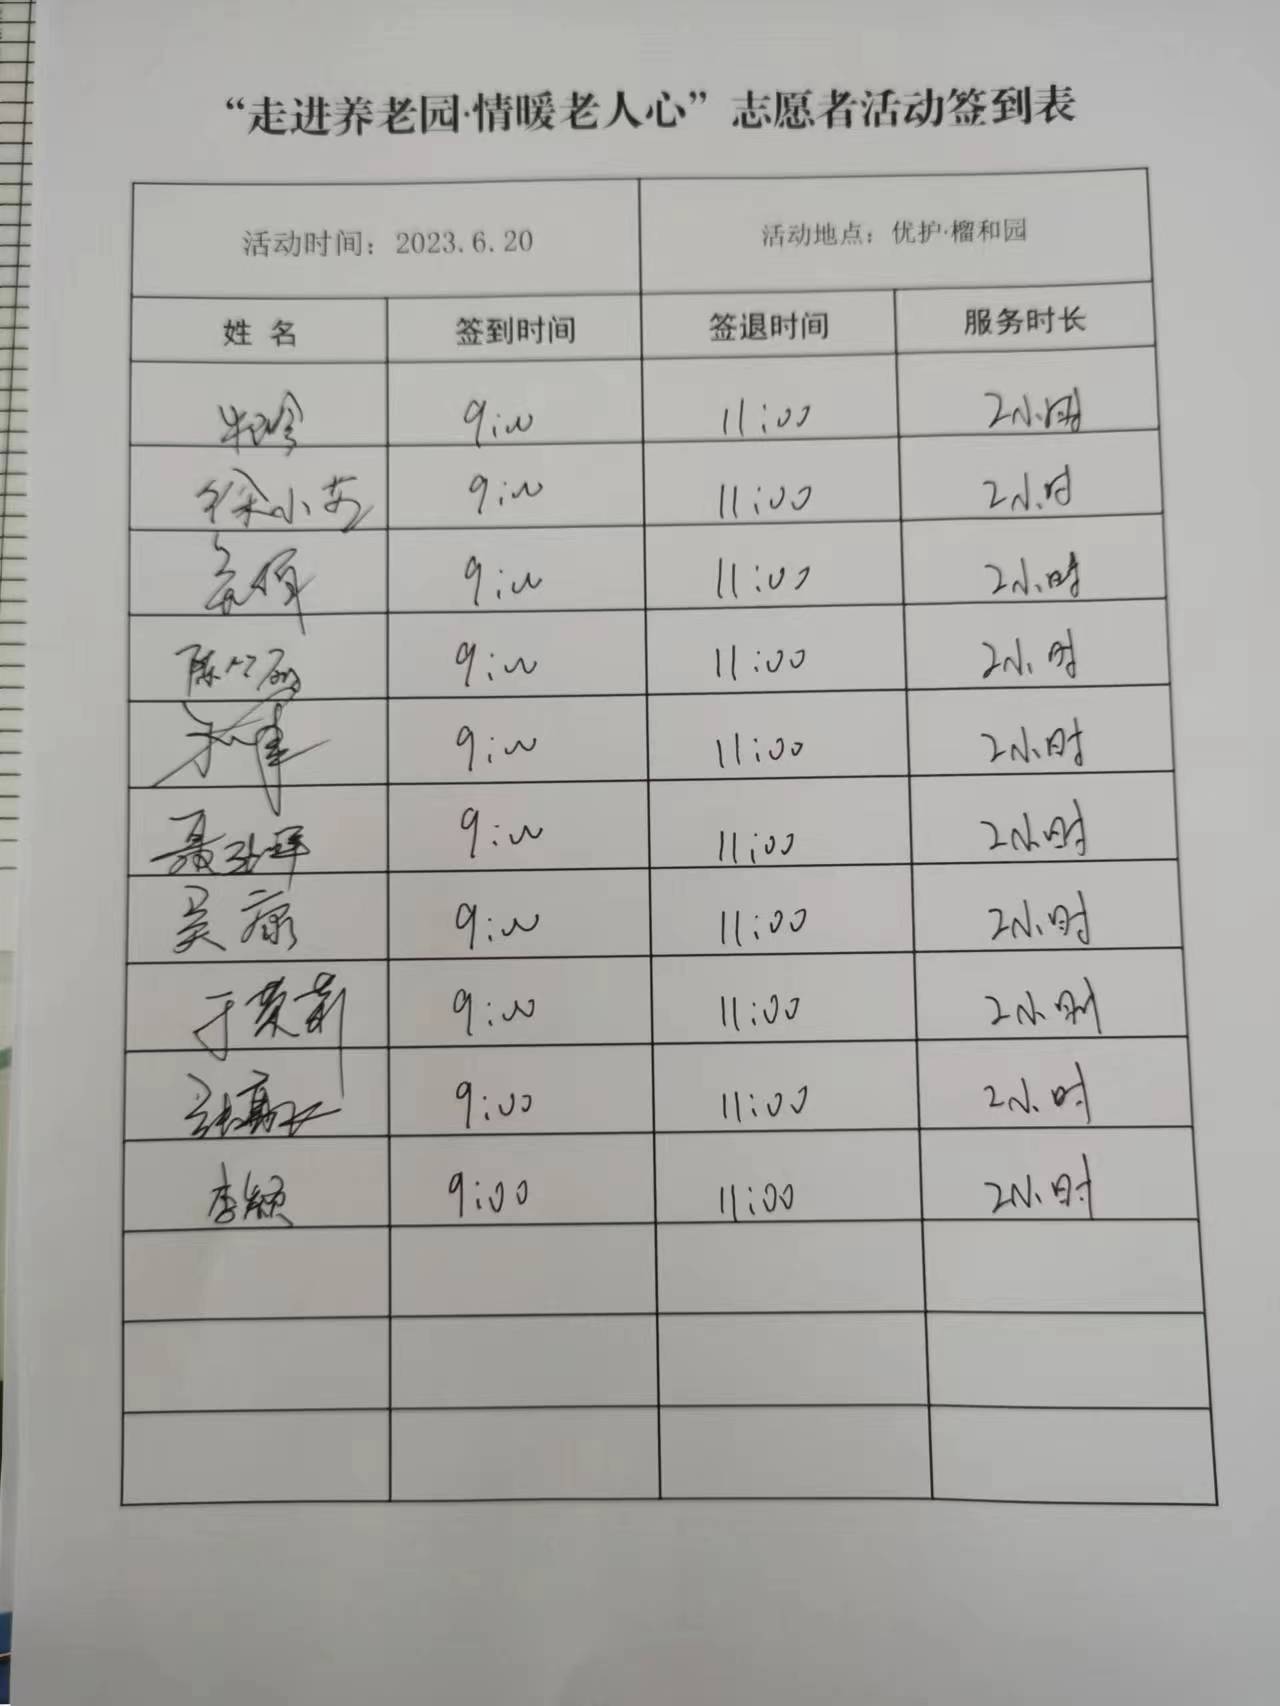 “走进养老园·情暖老人心”志愿者活动签到表
活动时间：2023.6.20 活动地点：优护·榴和园
姓 名 签到时间 签退时间 服务时长
9:00 11:00 2小时
徐小艺 9:00 11:00 2小时
9:00 11:00 2小时
陈 9:00 11:00 2小时
9:00 11:00 2小时
聂 9:00 11:00 2小时
吴康 9:00 11:00 2小时
于黄莉 9:00 11:00 2小时
9:00 11:00 2小时
李颖 9:00 11:00 2小时